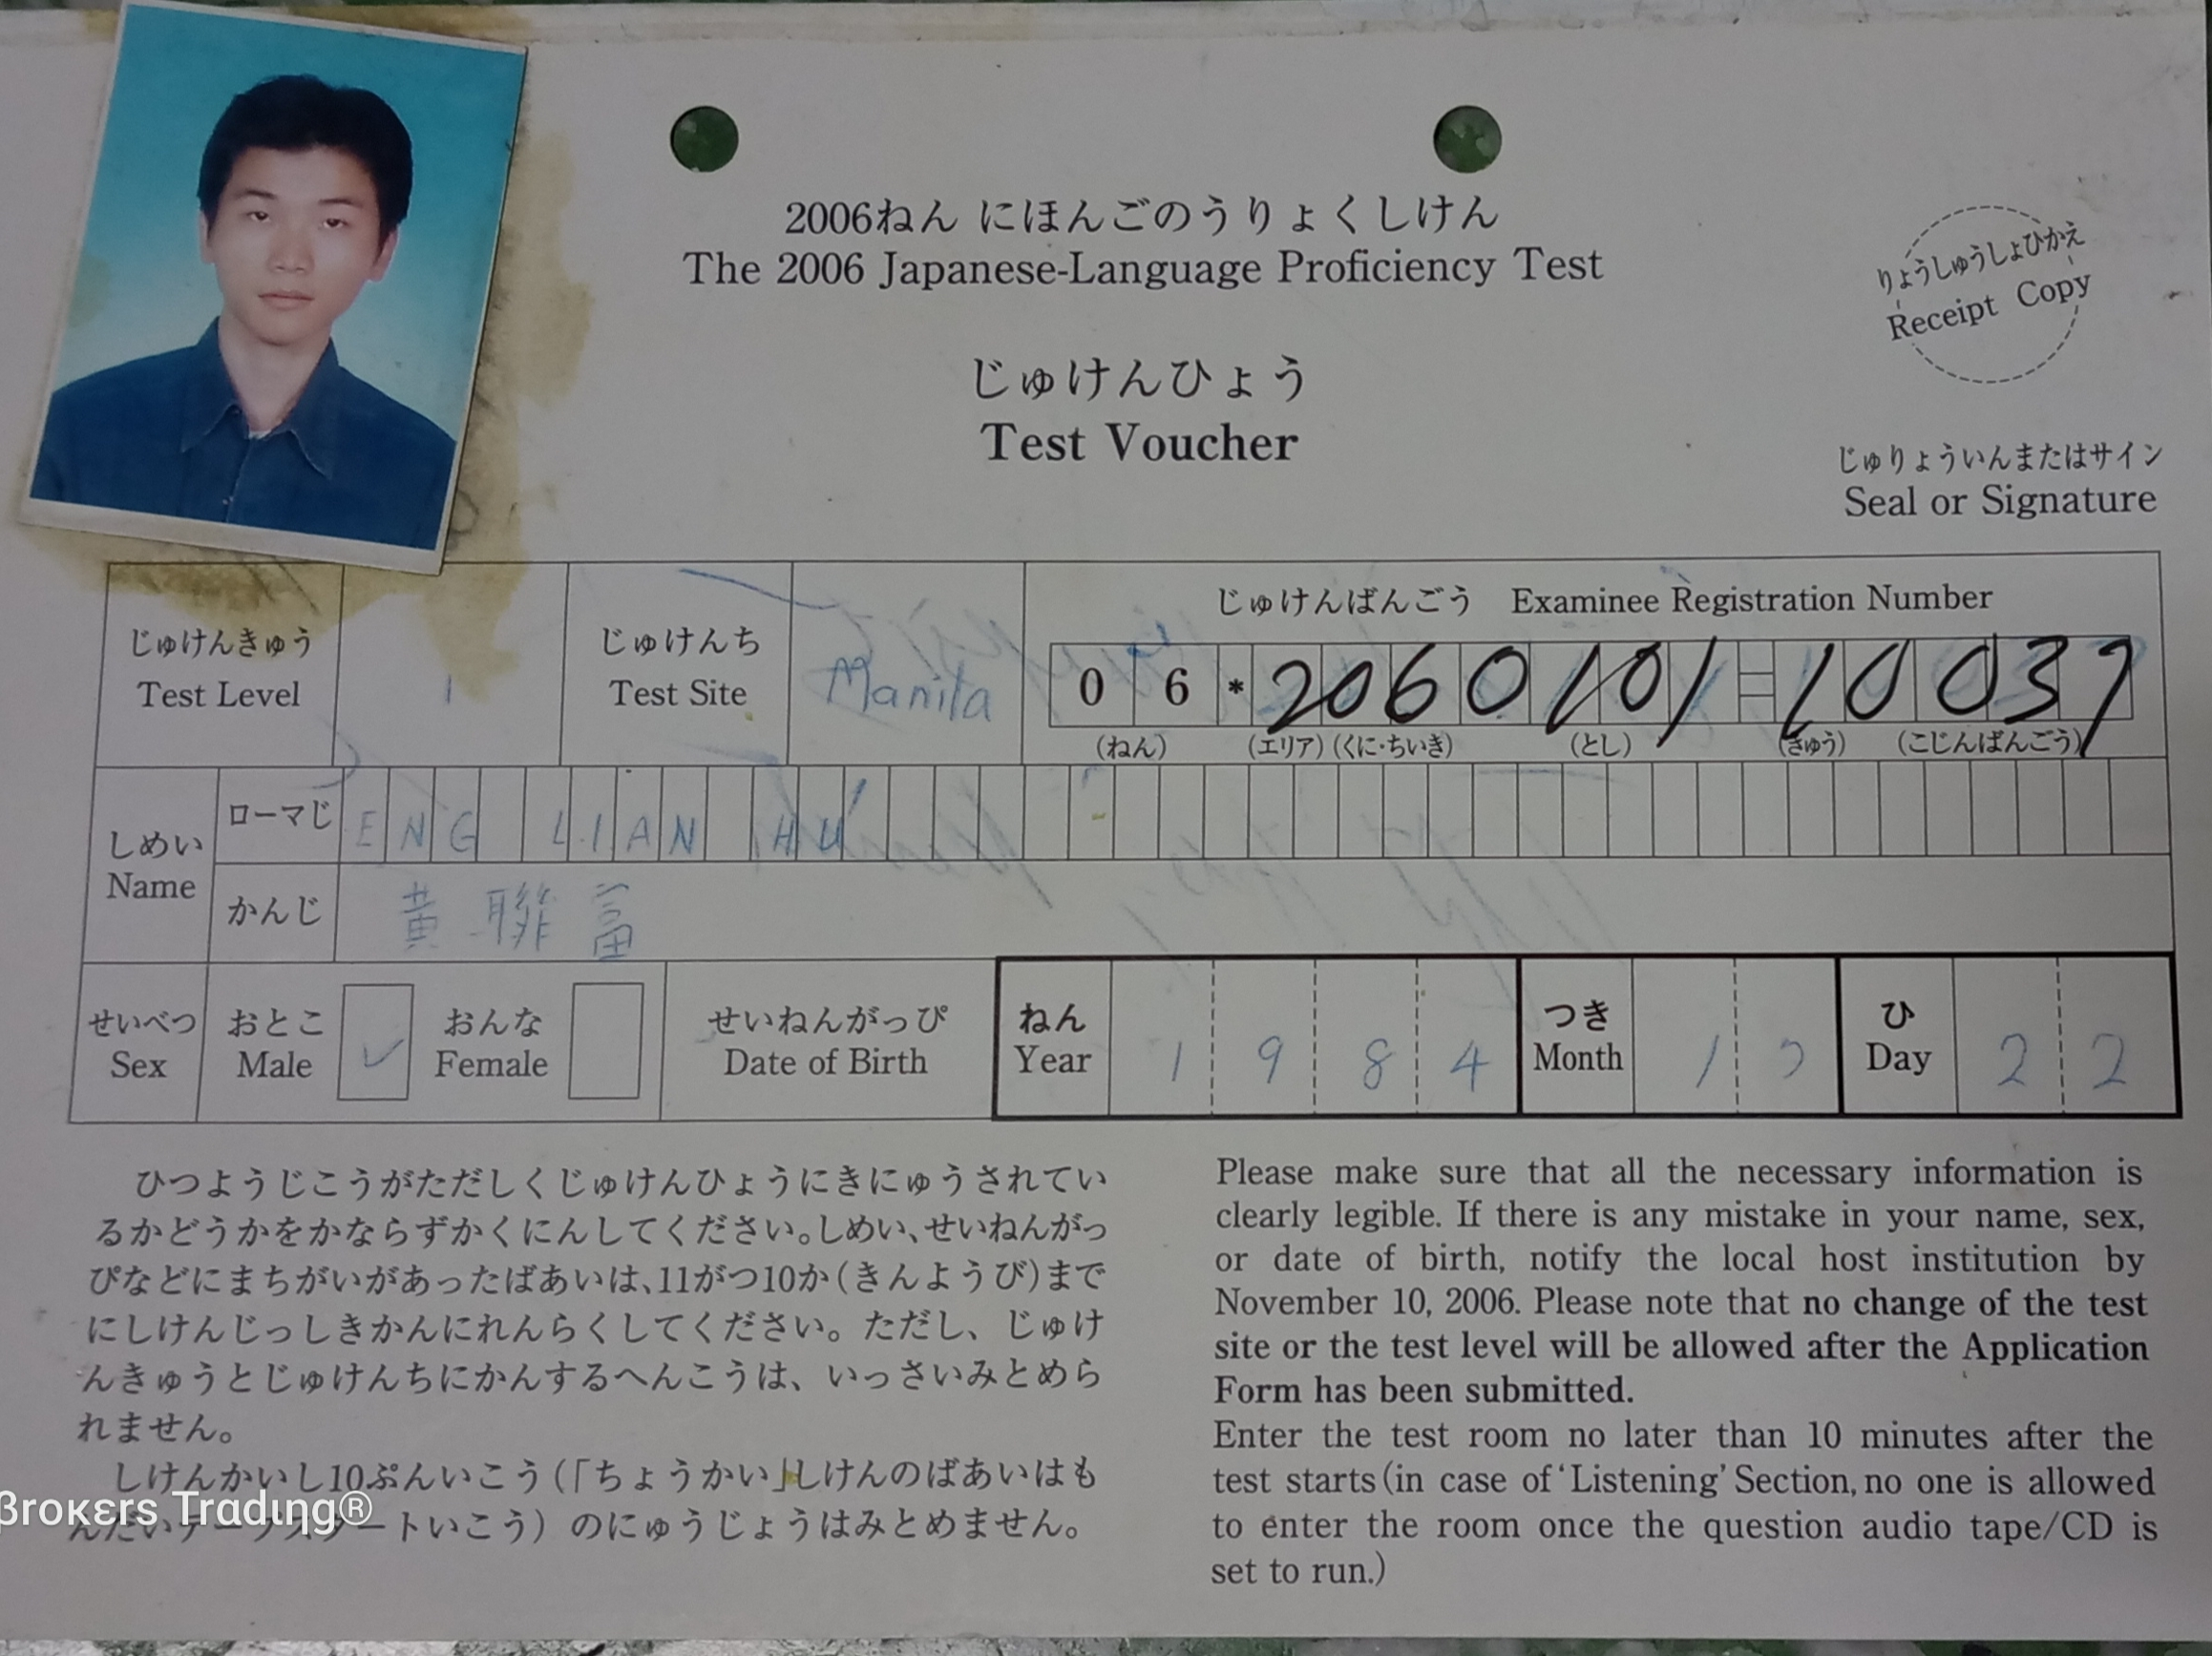 2006ねん にほんごのうりょくしけん
The 2006 Japanese-Language Proficiency Test
りょうしゅうしょひかえ
Receipt Copy
じゅけんひょう
Test Voucher
じゅりょういんまたはサイン
Seal or Signature
じゅけんきゅう
Test Level
1
じゅけんち
Test Site
Manila
じゅけんばんごう Examinee Registration Number
0 6 * 2060101-10037
(ねん) (エリア) (くに・ちいき) (とし) (きゅう) (こじんばんごう)
しめい
Name
ローマじ
ENG LIAN HU
かんじ
黄聯富
せいべつ
Sex
おとこ
Male
✓
おんな
Female
せいねんがっぴ
Date of Birth
ねん
Year
1984
つき
Month
ひ
Day
22
ひつようじこうがただしくじゅけんひょうにきにゅうされてい
るかどうかをかならずかくにんしてください。しめい、せいねんがっ
ぴなどにまちがいがあったばあいは、11がつ10か(きんようび)まで
にしけんじっしきかんにれんらくしてください。ただし、じゅけ
んきゅうとじゅけんちにかんするへんこうは、いっさいみとめら
れません。
しけんかいし10ぷんいこう(「ちょうかい」しけんのばあいはも
んだいテープスタートいこう) のにゅうじょうはみとめません。
Please make sure that all the necessary information is
clearly legible. If there is any mistake in your name, sex,
or date of birth, notify the local host institution by
November 10, 2006. Please note that no change of the test
site or the test level will be allowed after the Application
Form has been submitted.
Enter the test room no later than 10 minutes after the
test starts(in case of 'Listening' Section, no one is allowed
to enter the room once the question audio tape/CD is
set to run.)
βrοκεrs Trαdιng®